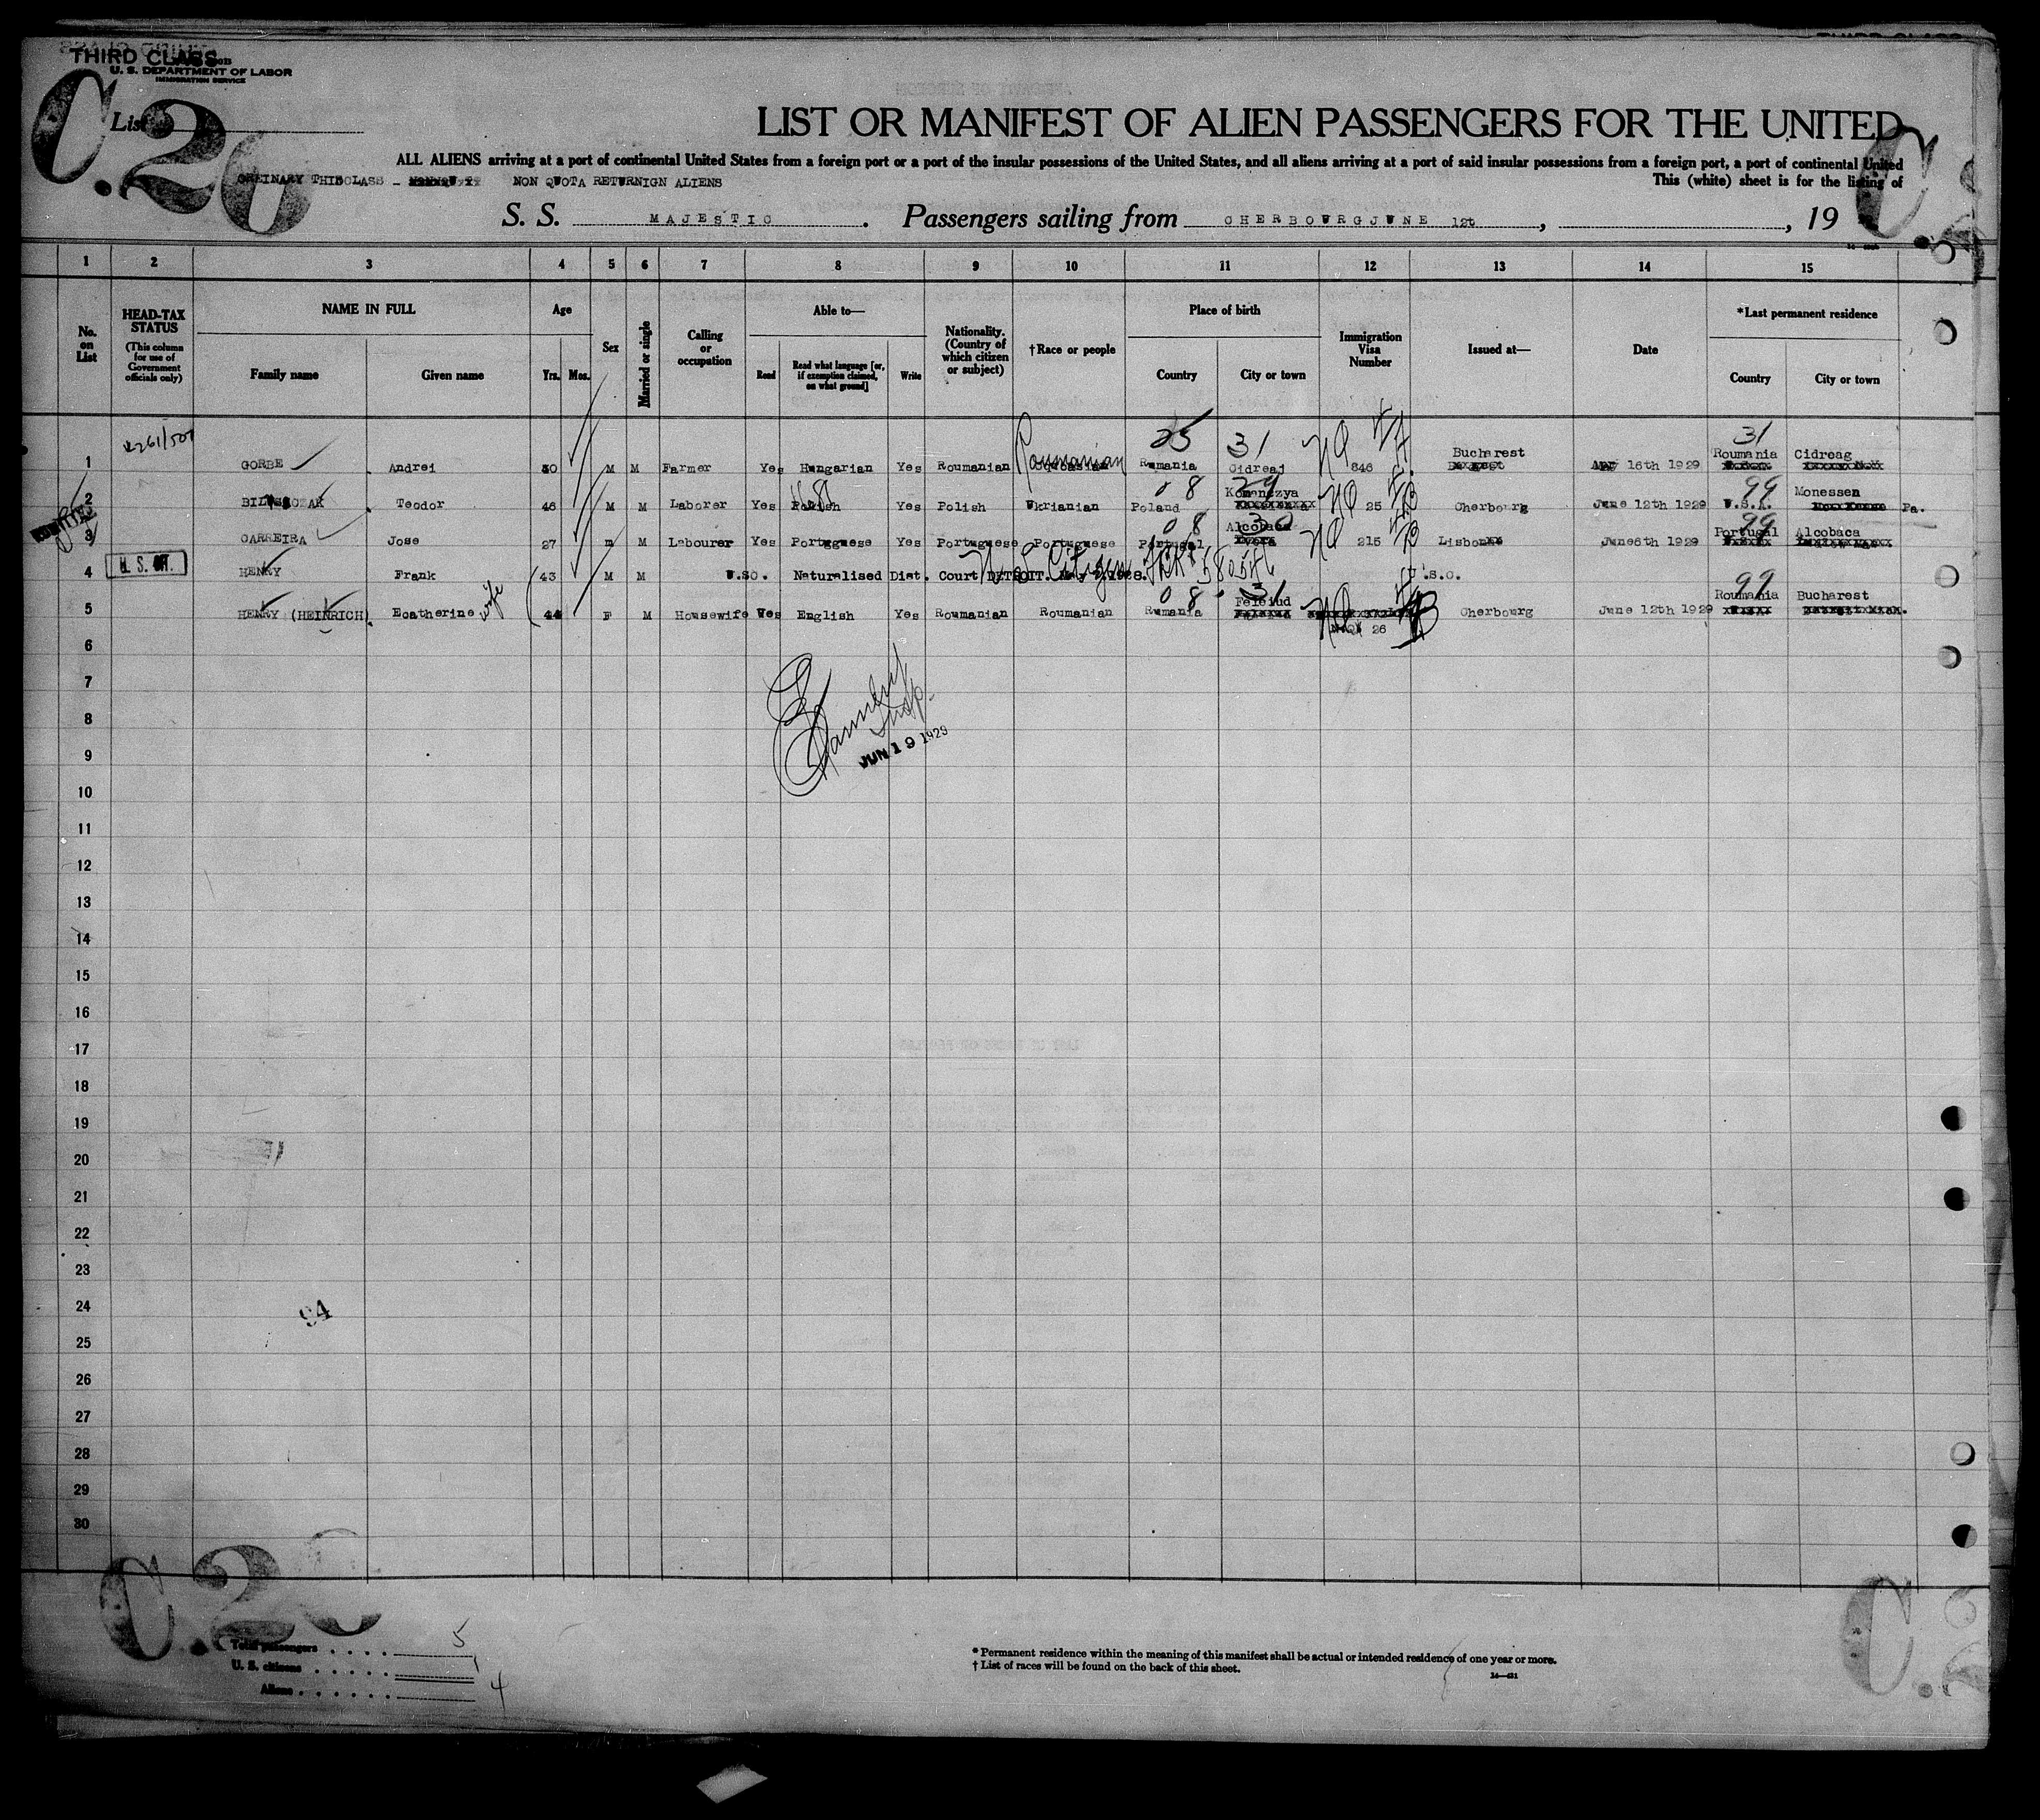 THIRD CLASS
U. S. DEPARTMENT OF LABOR
IMMIGRATION SERVICE
C.26
List
LIST OR MANIFEST OF ALIEN PASSENGERS FOR THE UNITED
ALL ALIENS arriving at a port of continental United States from a foreign port or a port of the insular possessions of the United States, and all aliens arriving at a port of said insular possessions from a foreign port, a port of continental United
ORDINARY THIRDCLASS - NON QUOTA RETURNIGN ALIENS
This (white) sheet is for the listing of
S. S. MAJESTIC. Passengers sailing from CHERBOURGJUNE 12t, , 19
1 2 3 4 5 6 7 8 9 10 11 12 13 14 15
No. on List
HEAD-TAX STATUS
(This column for use of Government officials only)
NAME IN FULL
Family name Given name
Age
Yrs. Mos.
Sex
Married or single
Calling or occupation
Able to—
Read Read what language [or, if exemption claimed, on what ground] Write
Nationality. (Country of which citizen or subject)
†Race or people
Place of birth
Country City or town
Immigration Visa Number
Issued at—
Date
*Last permanent residence
Country City or town
25 31 NQ 31
1 GORBE Andrei 30 M M Farmer Yes Hungarian Yes Roumanian Roumanian Rumania Cidreaj 846 Bucharest Apr 16th 1929 Roumania Cidreag
08 29 NQ 99
2 Teodor 46 M M Laborer Yes Polish Yes Polish Ukrianian Poland Komanczya 25 Cherbourg June 12th 1929 U.S.A. Monessen Pa.
08 30 NQ 99
3 CARREIRA Jose 27 m M Labourer Yes Portuguese Yes Portuguese Portuguese Portugal Alcobaca 215 Lisbon June6th 1929 Portugal Alcobaca
U. S. CIT.
4 HENRY Frank 43 M M U.SO. Naturalised Dist. Court DETROIT. U.S.O.
U S Citizen
08 31 NQ 99
5 HENRY (HEINRICH) Ecatherine wife 44 F M Housewife Yes English Yes Roumanian Roumanian Rumania Feleiud Cherbourg June 12th 1929 Roumania Bucharest
26
6
7
8
Insp.
JUN 19 1929
9
10
11
12
13
14
15
16
17
18
19
20
21
22
23
24
94
25
26
27
28
29
30
C.26
Total passengers 5
U. S. citizens 1
Aliens 4
* Permanent residence within the meaning of this manifest shall be actual or intended residence of one year or more.
† List of races will be found on the back of this sheet.